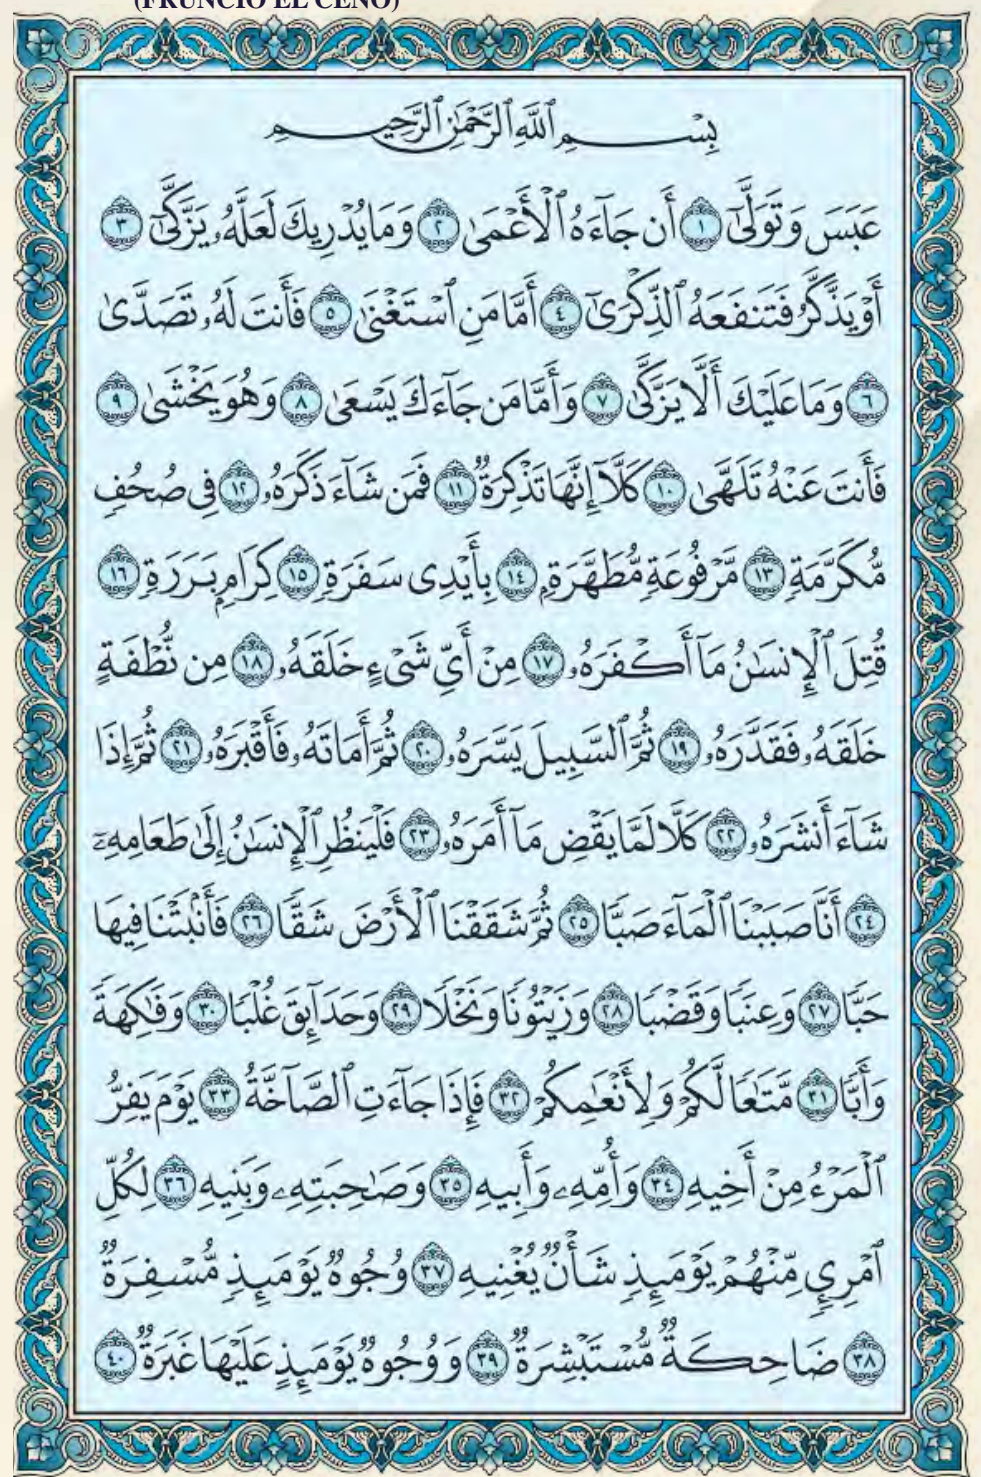 (FRUNCIÓ EL CEÑO)
بِسْمِ ٱللَّهِ ٱلرَّحْمَٰنِ ٱلرَّحِيمِ
عَبَسَ وَتَوَلَّىٰٓ ١ أَن جَآءَهُ ٱلْأَعْمَىٰ ٢ وَمَا يُدْرِيكَ لَعَلَّهُۥ يَزَّكَّىٰٓ ٣
أَوْ يَذَّكَّرُ فَتَنفَعَهُ ٱلذِّكْرَىٰٓ ٤ أَمَّا مَنِ ٱسْتَغْنَىٰ ٥ فَأَنتَ لَهُۥ تَصَدَّىٰ
٦ وَمَا عَلَيْكَ أَلَّا يَزَّكَّىٰ ٧ وَأَمَّا مَن جَآءَكَ يَسْعَىٰ ٨ وَهُوَ يَخْشَىٰ ٩
فَأَنتَ عَنْهُ تَلَهَّىٰ ١٠ كَلَّآ إِنَّهَا تَذْكِرَةٌ ١١ فَمَن شَآءَ ذَكَرَهُۥ ١٢ فِى صُحُفٍ
مُّكَرَّمَةٍ ١٣ مَّرْفُوعَةٍ مُّطَهَّرَةٍۭ ١٤ بِأَيْدِى سَفَرَةٍ ١٥ كِرَامٍۭ بَرَرَةٍ ١٦
قُتِلَ ٱلْإِنسَٰنُ مَآ أَكْفَرَهُۥ ١٧ مِنْ أَىِّ شَىْءٍ خَلَقَهُۥ ١٨ مِن نُّطْفَةٍ
خَلَقَهُۥ فَقَدَّرَهُۥ ١٩ ثُمَّ ٱلسَّبِيلَ يَسَّرَهُۥ ٢٠ ثُمَّ أَمَاتَهُۥ فَأَقْبَرَهُۥ ٢١ ثُمَّ إِذَا
شَآءَ أَنشَرَهُۥ ٢٢ كَلَّا لَمَّا يَقْضِ مَآ أَمَرَهُۥ ٢٣ فَلْيَنظُرِ ٱلْإِنسَٰنُ إِلَىٰ طَعَامِهِۦٓ
٢٤ أَنَّا صَبَبْنَا ٱلْمَآءَ صَبًّا ٢٥ ثُمَّ شَقَقْنَا ٱلْأَرْضَ شَقًّا ٢٦ فَأَنۢبَتْنَا فِيهَا
حَبًّا ٢٧ وَعِنَبًا وَقَضْبًا ٢٨ وَزَيْتُونًا وَنَخْلًا ٢٩ وَحَدَآئِقَ غُلْبًا ٣٠ وَفَٰكِهَةً
وَأَبًّا ٣١ مَّتَٰعًا لَّكُمْ وَلِأَنْعَٰمِكُمْ ٣٢ فَإِذَا جَآءَتِ ٱلصَّآخَّةُ ٣٣ يَوْمَ يَفِرُّ
ٱلْمَرْءُ مِنْ أَخِيهِ ٣٤ وَأُمِّهِۦ وَأَبِيهِ ٣٥ وَصَٰحِبَتِهِۦ وَبَنِيهِ ٣٦ لِكُلِّ
ٱمْرِئٍ مِّنْهُمْ يَوْمَئِذٍ شَأْنٌ يُغْنِيهِ ٣٧ وُجُوهٌ يَوْمَئِذٍ مُّسْفِرَةٌ
٣٨ ضَاحِكَةٌ مُّسْتَبْشِرَةٌ ٣٩ وَوُجُوهٌ يَوْمَئِذٍ عَلَيْهَا غَبَرَةٌ ٤٠